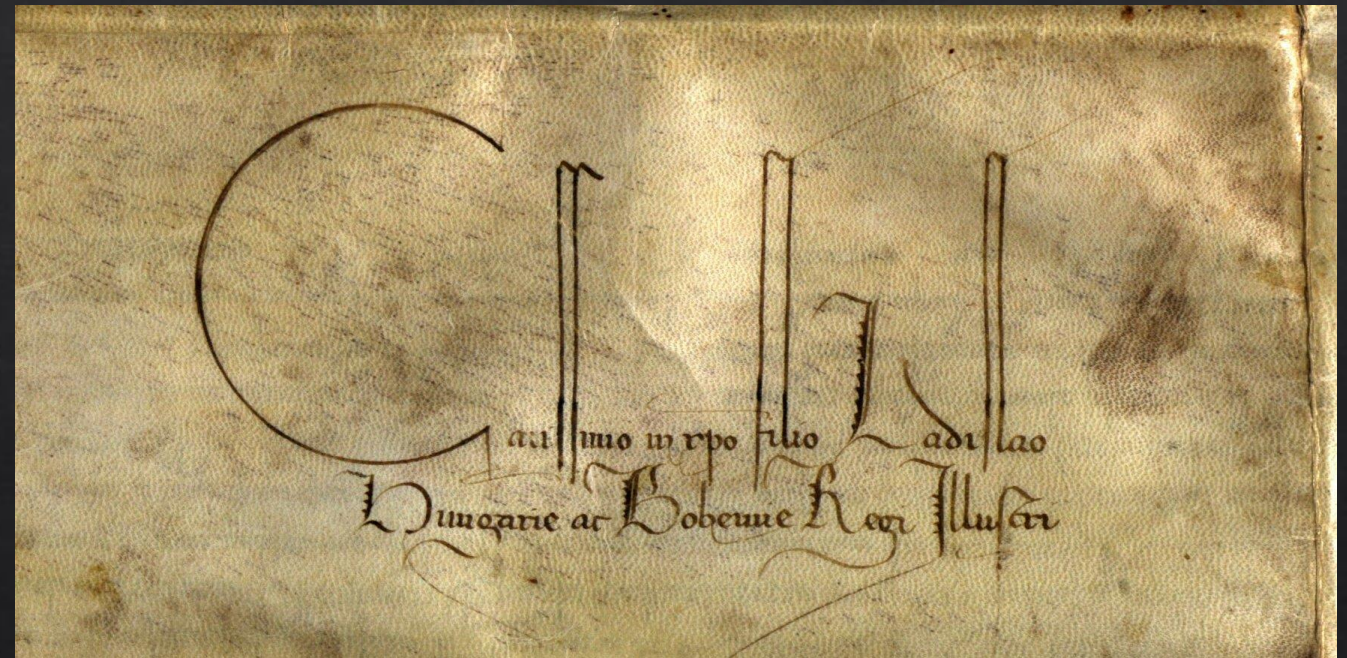 Carissimo in xpo filio Ladislao
Hungarie ac Bohemie Regi Illustri